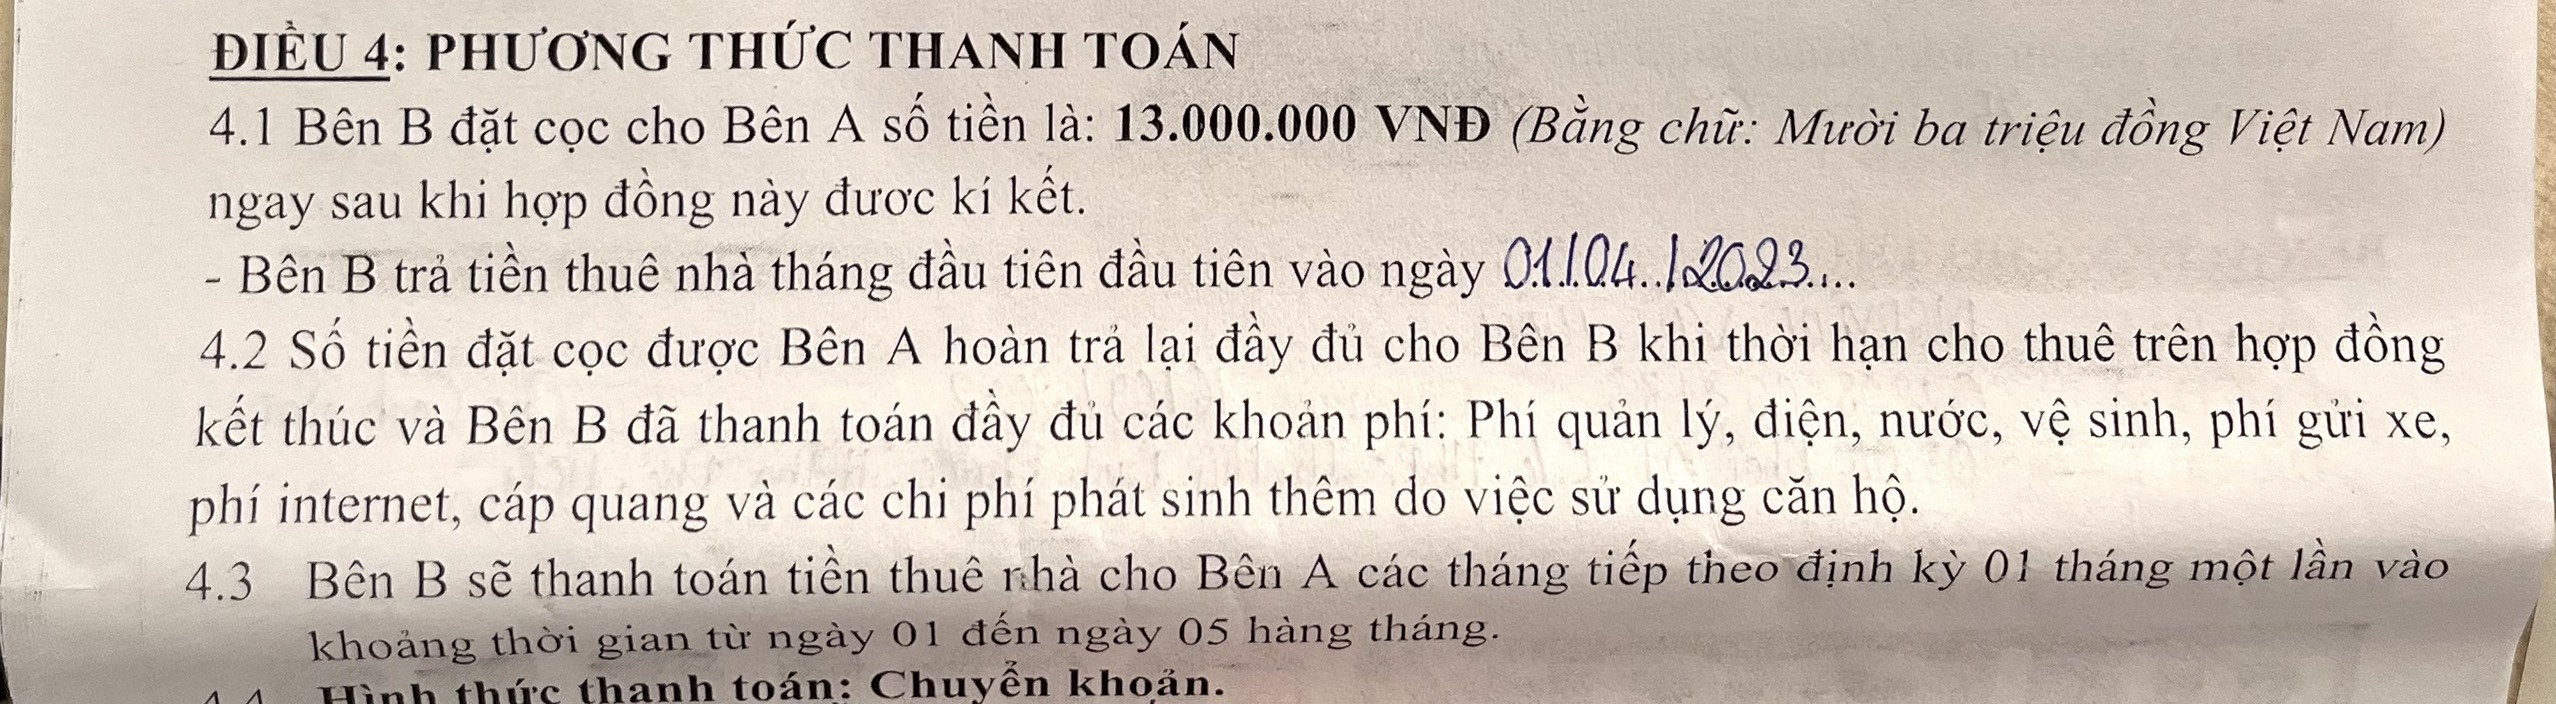 ĐIỀU 4: PHƯƠNG THỨC THANH TOÁN
4.1 Bên B đặt cọc cho Bên A số tiền là: 13.000.000 VNĐ (Bằng chữ: Mười ba triệu đồng Việt Nam)
ngay sau khi hợp đồng này đươc kí kết.
- Bên B trả tiền thuê nhà tháng đầu tiên đầu tiên vào ngày 01/04../2023....
4.2 Số tiền đặt cọc được Bên A hoàn trả lại đầy đủ cho Bên B khi thời hạn cho thuê trên hợp đồng
kết thúc và Bên B đã thanh toán đầy đủ các khoản phí: Phí quản lý, điện, nước, vệ sinh, phí gửi xe,
phí internet, cáp quang và các chi phí phát sinh thêm do việc sử dụng căn hộ.
4.3 Bên B sẽ thanh toán tiền thuê nhà cho Bên A các tháng tiếp theo định kỳ 01 tháng một lần vào
khoảng thời gian từ ngày 01 đến ngày 05 hàng tháng.
4.4 Hình thức thanh toán: Chuyển khoản.